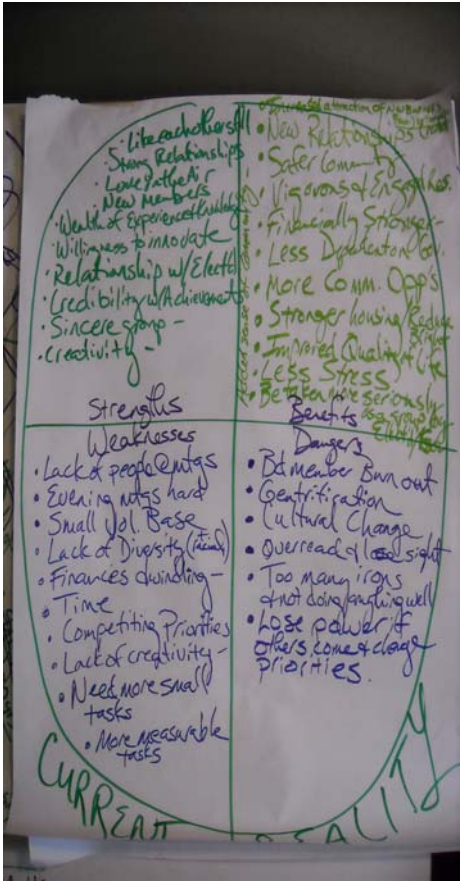 • Like each others
• Strong Relationships
• Love
New Members
• Wealth of Experience & Knowledge
• Willigness to innovate
• Relationship w/ Elected
• Credibility w/ Achievements
• Sincere group -
• Creativity -
Strengths
• Increased attraction of
• New Relationships
• Safer Community
• Vigorous & Engaged
• Financially Stronger -
• Less Dependent on
• More Comm. Opp's
• Stronger housing/Reduce
Blight
• Improved Quality of Life
• Less Stress
• Be taken more seriously
as a group by
sense of community
Benefits
Weaknesses
• Lack of people @ mtgs
• Evening mtgs hard
• Small Vol. Base
• Lack of Diversity (racial)
• Finances dwindling -
• Time
• Competiting Priorities
• Lack of creativity -
• Need more small
tasks
• More measurable
tasks
Dangers
• Bd member Burn out
• Gentrification
• Cultural Change
• Overread & lose sight
• Too many irons
& not doing anything well
• Lose power if
others come & change
priorities.
CURRENT REALITY